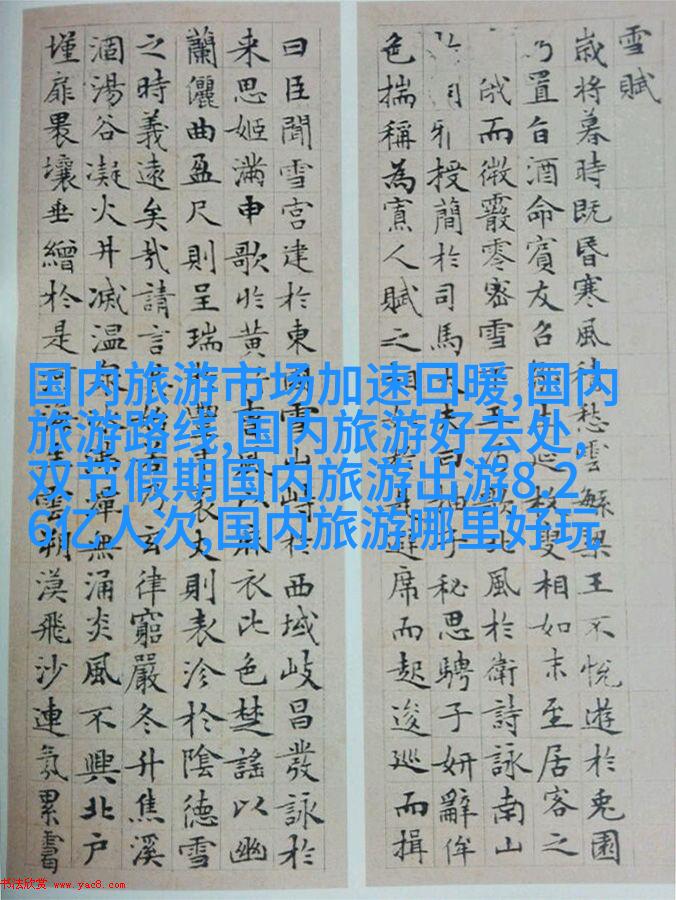 雪賦
歲將暮時既昏寒風愁雲繁梁王不悅遊於兔園
乃置旨酒命賓友召延枚叟相如末至居客之
俄而微霰零密雪王乃歌北風於衛詩詠南山
授簡於司馬大夫曰抽子秘思騁子妍辭侔
色揣稱為寡人賦之相如於是避席而起逡巡而揖
曰臣聞雪宮建於東國雪山峙於西域岐昌發詠於
来思姬滿申歌於黃曹風以麻衣比色楚謠以幽
蘭儷曲盈尺則呈瑞豐年袤丈則表沴於陰德雪
之時義遠矣哉請言其始若乃玄律窮嚴冬升焦溪
涸湯谷凝火井滅溫泉沸潭無涌炎風不興北戶
墐扉壤垂繒於是河海生雲朔漠飛沙連氛累
国内旅游市场加速回暖,国内
旅游路线,国内旅游好去处,
双节假期国内旅游出游8.2
6亿人次,国内旅游哪里好玩,
书法欣赏 www.yac8.com